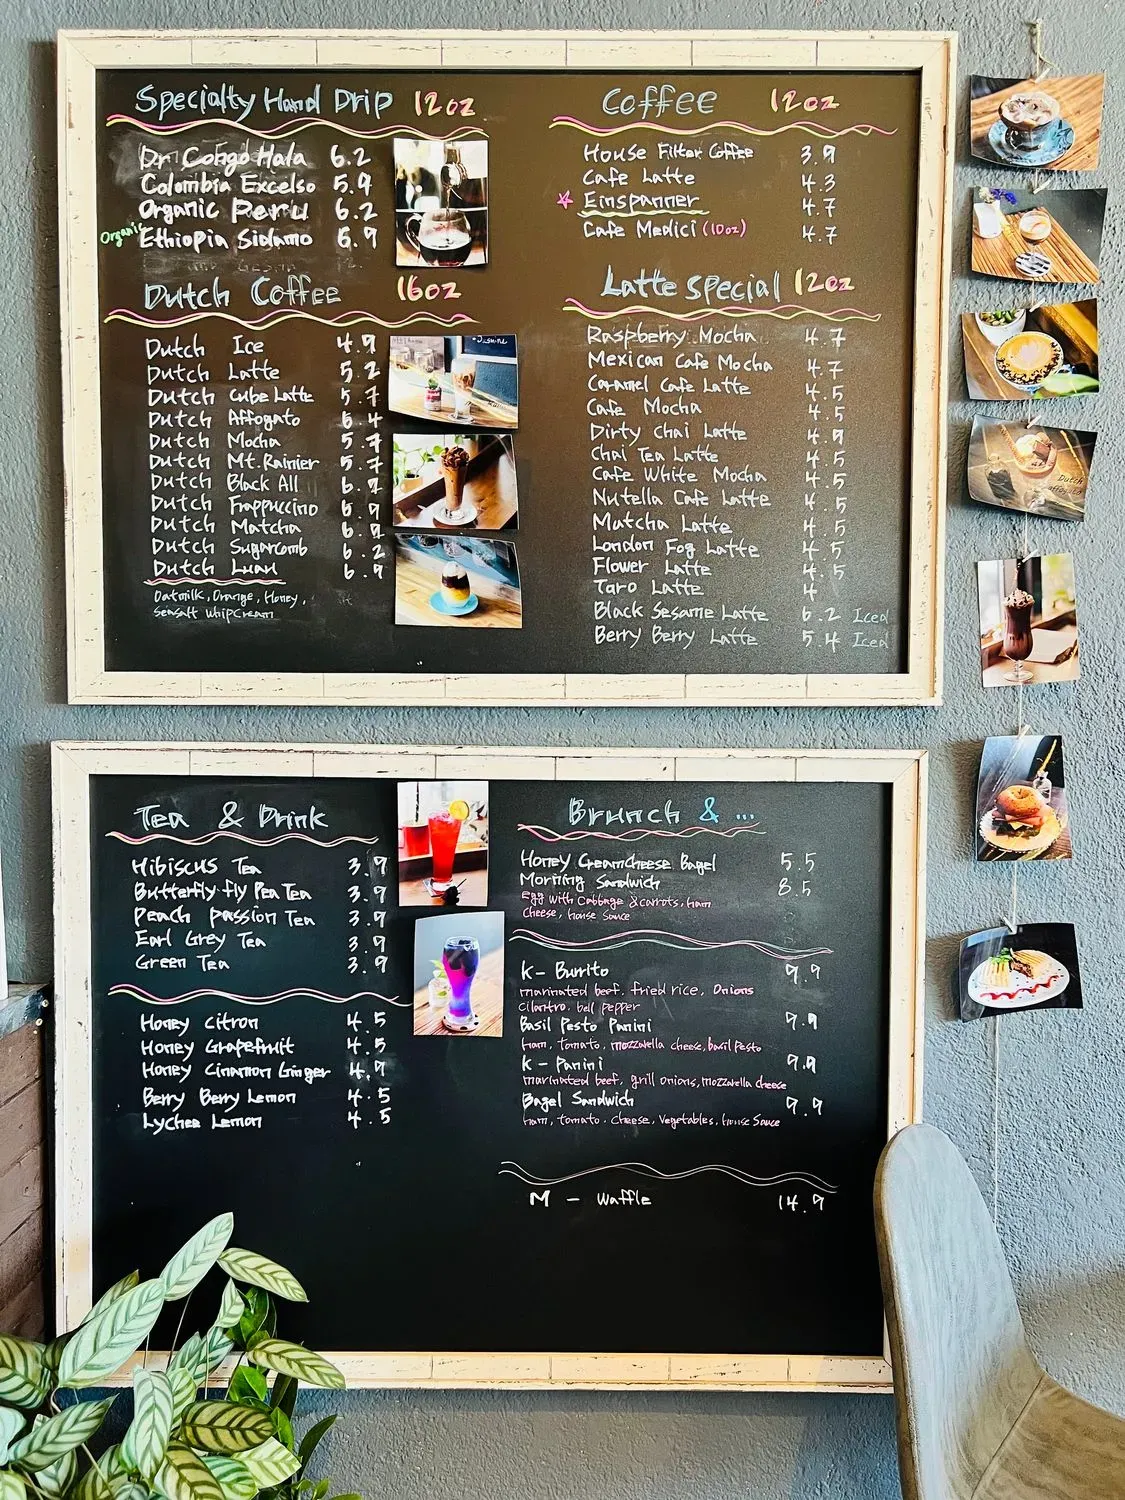 Specialty Hand Drip 12oz
Dr Congo Hala 6.2
Colombia Excelso 5.9
Organic Peru 6.2
Organic Ethiopia Sidamo 6.9
Dutch Coffee 16oz
Dutch Ice 4.9
Dutch Latte 5.2
Dutch Cube Latte 5.7
Dutch Affogato 6.4
Dutch Mocha 5.7
Dutch Mt.Rainier 5.7
Dutch Black All
Dutch Frappuccino 6.9
Dutch Matcha 6.9
Dutch Sugarcomb 6.2
Dutch Luau 6.9
Oatmilk, Orange, Honey,
Seasalt whipcream
Coffee 12oz
House Filter Coffee 3.9
Cafe Latte 4.3
Einspanner 4.7
Cafe Medici (10oz) 4.7
Latte Special 12oz
Raspberry Mocha 4.7
Mexican Cafe Mocha 4.7
Caramel Cafe Latte 4.5
Cafe Mocha 4.5
Dirty Chai Latte 4.9
Chai Tea Latte 4.5
Cafe White Mocha 4.5
Nutella Cafe Latte 4.5
Matcha Latte 4.5
London Fog Latte 4.5
Flower Latte 4.5
Taro Latte 4
Black Sesame Latte 6.2 Iced
Berry Berry Latte 5.4 Iced
Tea & Drink
Hibiscus Tea 3.9
Butterfly-fly Pea Tea 3.9
Peach passion Tea 3.9
Earl Grey Tea 3.9
Green Tea 3.9
Honey citron 4.5
Honey Grapefruit 4.5
Honey Cinamon Ginger 4.9
Berry Berry Lemon 4.5
Lychee Lemon 4.5
Brunch & ...
Honey Creamcheese Bagel 5.5
Morning Sandwich 8.5
Egg with Cabbage & carots, ham
Cheese, house Sauce
K- Burrito 9.9
marinated beef, fried rice, Onions
cilantro, bell pepper
Basil Pesto Panini 9.9
ham, tomato, mozzarella cheese, basil Pesto
K- Panini 9.9
marinated beef, grill onions, mozzarella cheese
Bagel Sandwich 9.9
ham, tomato, cheese, vegetables, house Sauce
M - Waffle 14.9
Dutch
Affogato